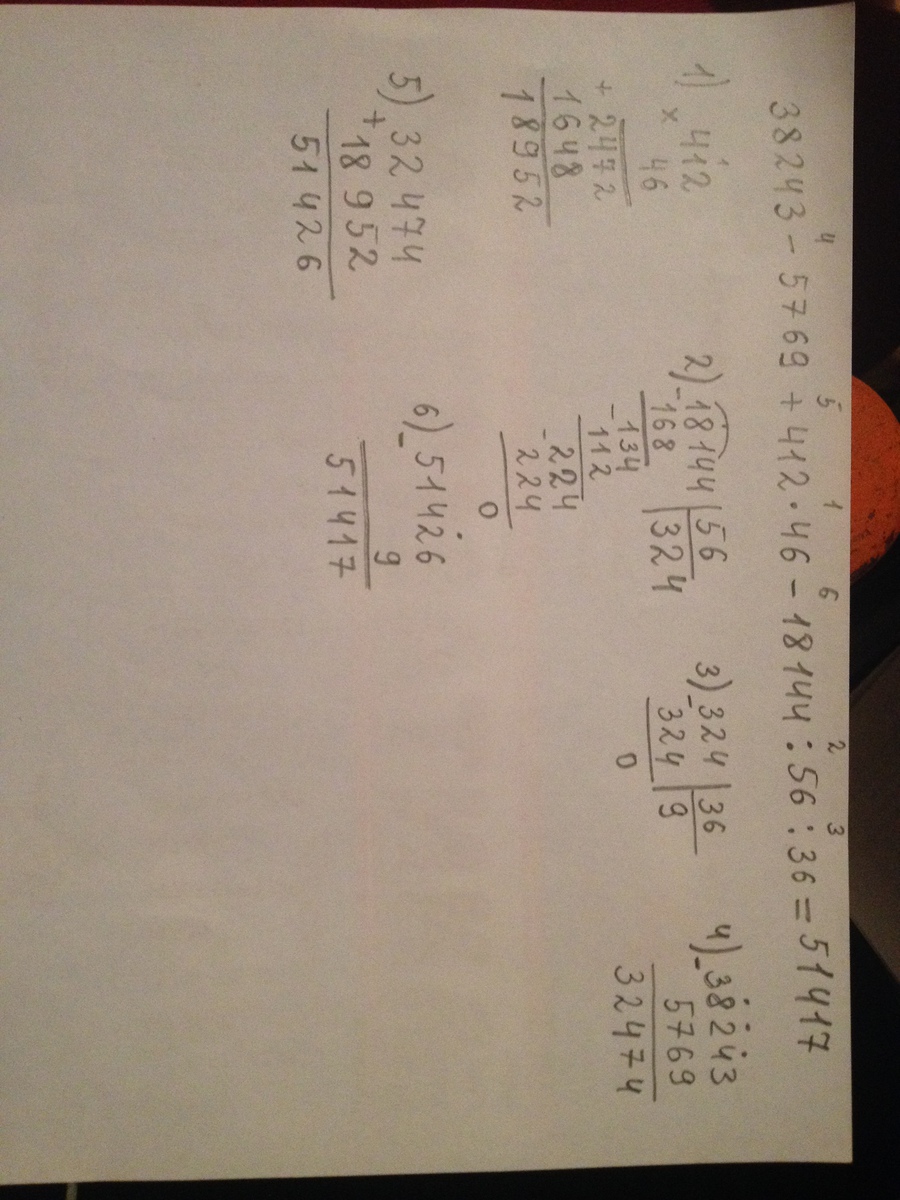 4 5 1 6 2 3
38243 - 5769 + 412 · 46 - 18144 : 56 : 36 = 51417
1) 412
× 46
+ 2472
1648
18952
2) - 18144 | 56
168 | 324
- 134
112
- 224
224
0
3) - 324 | 36
324 | 9
0
4) - 38243
5769
32474
5) + 32474
18952
51426
6) - 51426
9
51417